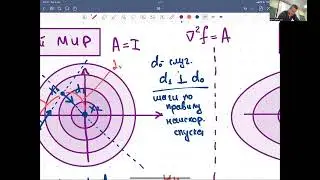 й МИР
A=I
∇²f=A
d₁
d₁ ⊥ d₀
шаги по
правилу
наискор.
спуска